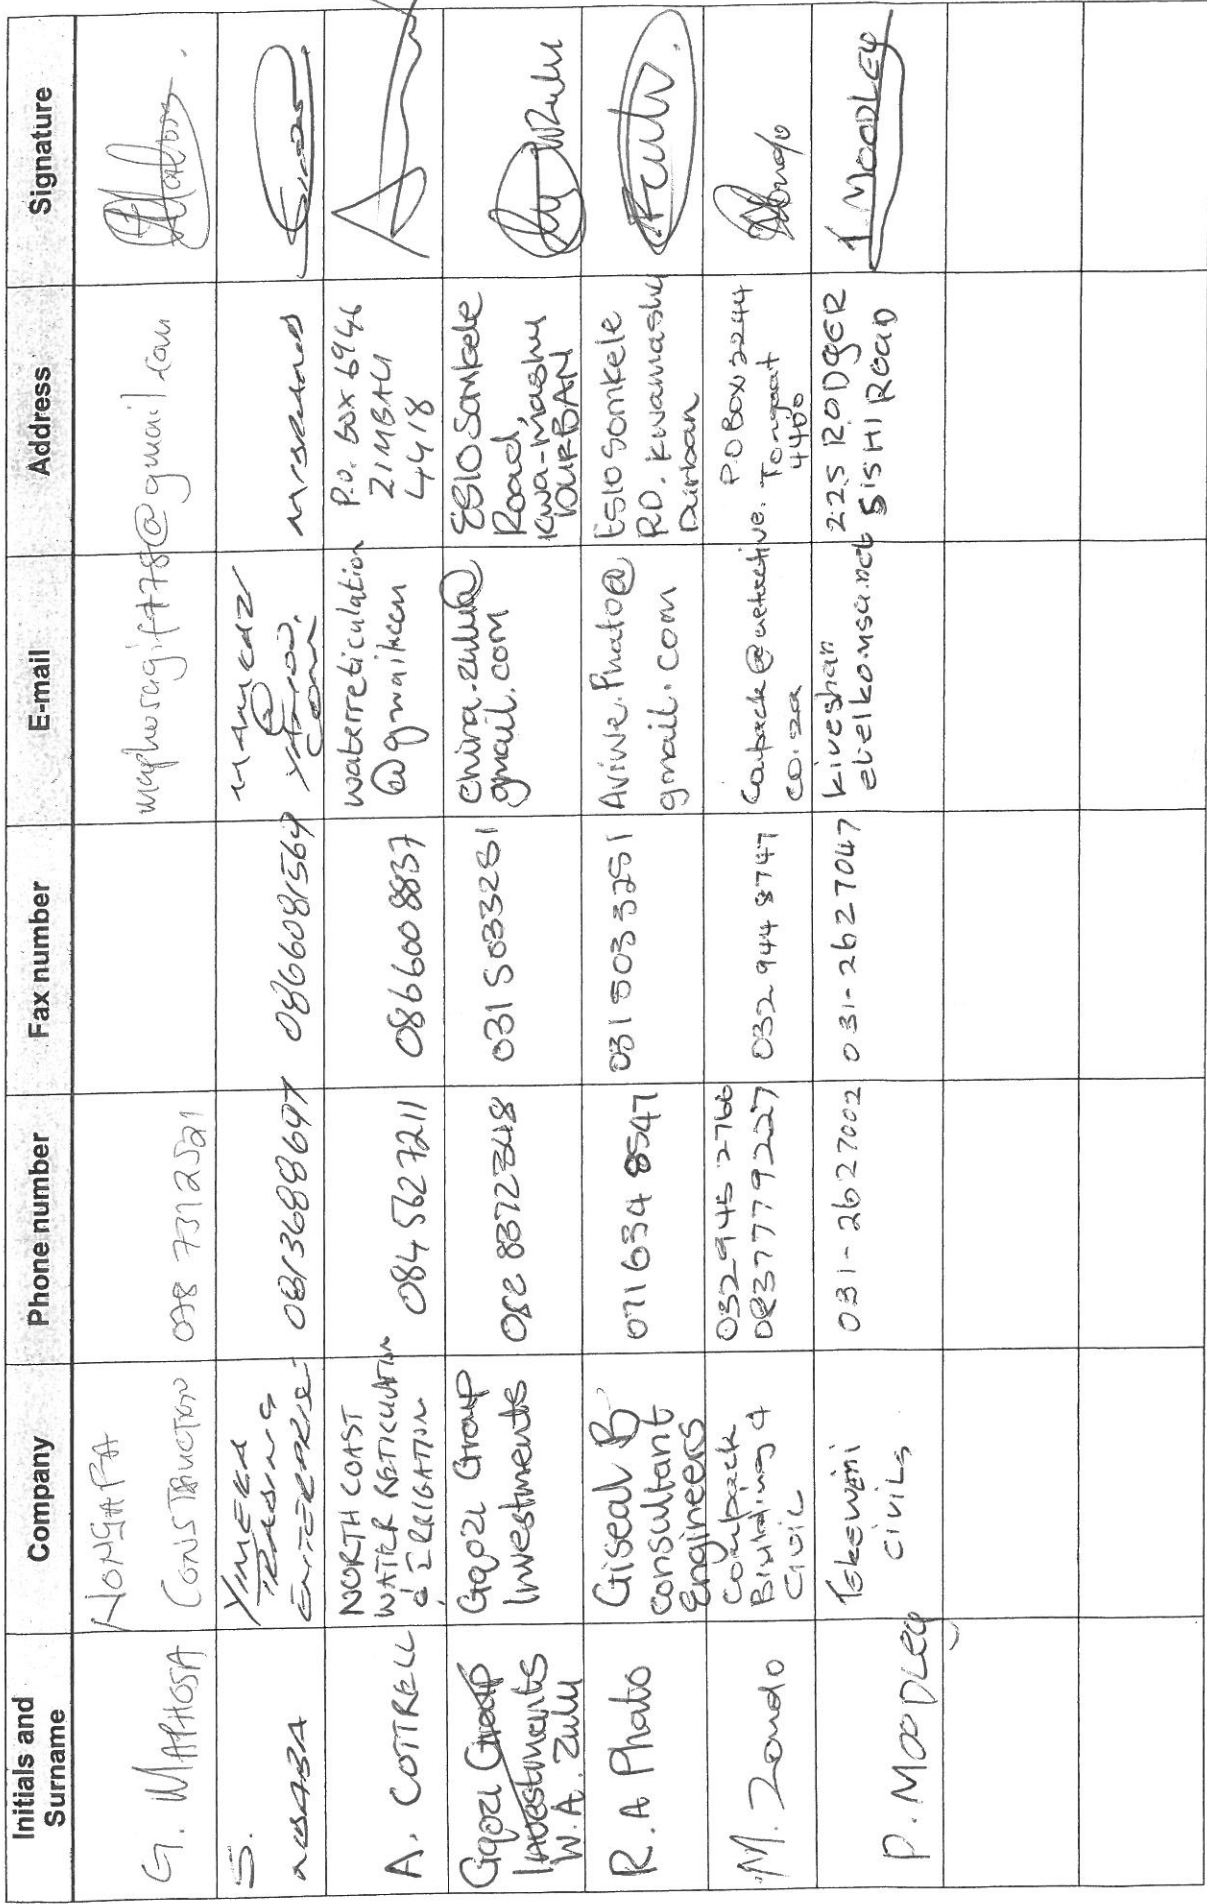 Initials and
Surname
Company
Phone number
Fax number
E-mail
Address
Signature
G. MAPHOSA
CONSTRUCTION
078 7312521
maphosagift778@gmail.com
S.
TRADING
ENTERPRISE
0813688697
0866081564
A. COTTRELL
NORTH COAST
WATER RETICULATION
& IRRIGATION
084 5627211
086 600 8837
waterreticulation
@gmail.com
P.O. BOX 6946
ZIMBALI
4418
Gqozi Group
Investments
W.A. Zulu
Gqozi Group
Investments
082 8372348
031 5033251
chira.zulu@
gmail.com
E510 Somkele
Road
Kwa-Mashu
DURBAN
WZulu
R.A Phato
Giseal B
consultant
Engineers
071 634 8547
031 503 3251
Aviwe.Phato@
gmail.com
E510 Somkele
RD. Kwamashu
Durban
M. Zondo
Building &
Civil
032 945 2766
0837779227
032 944 8747
co.za
P.O Box 2244
Tongaat
4400
P. MOODLEY
Tekewini
civils
031-2627002
031-2627047
kiveshan
@telkomsa.net
225 RODGER
SISHI ROAD
P MOODLEY